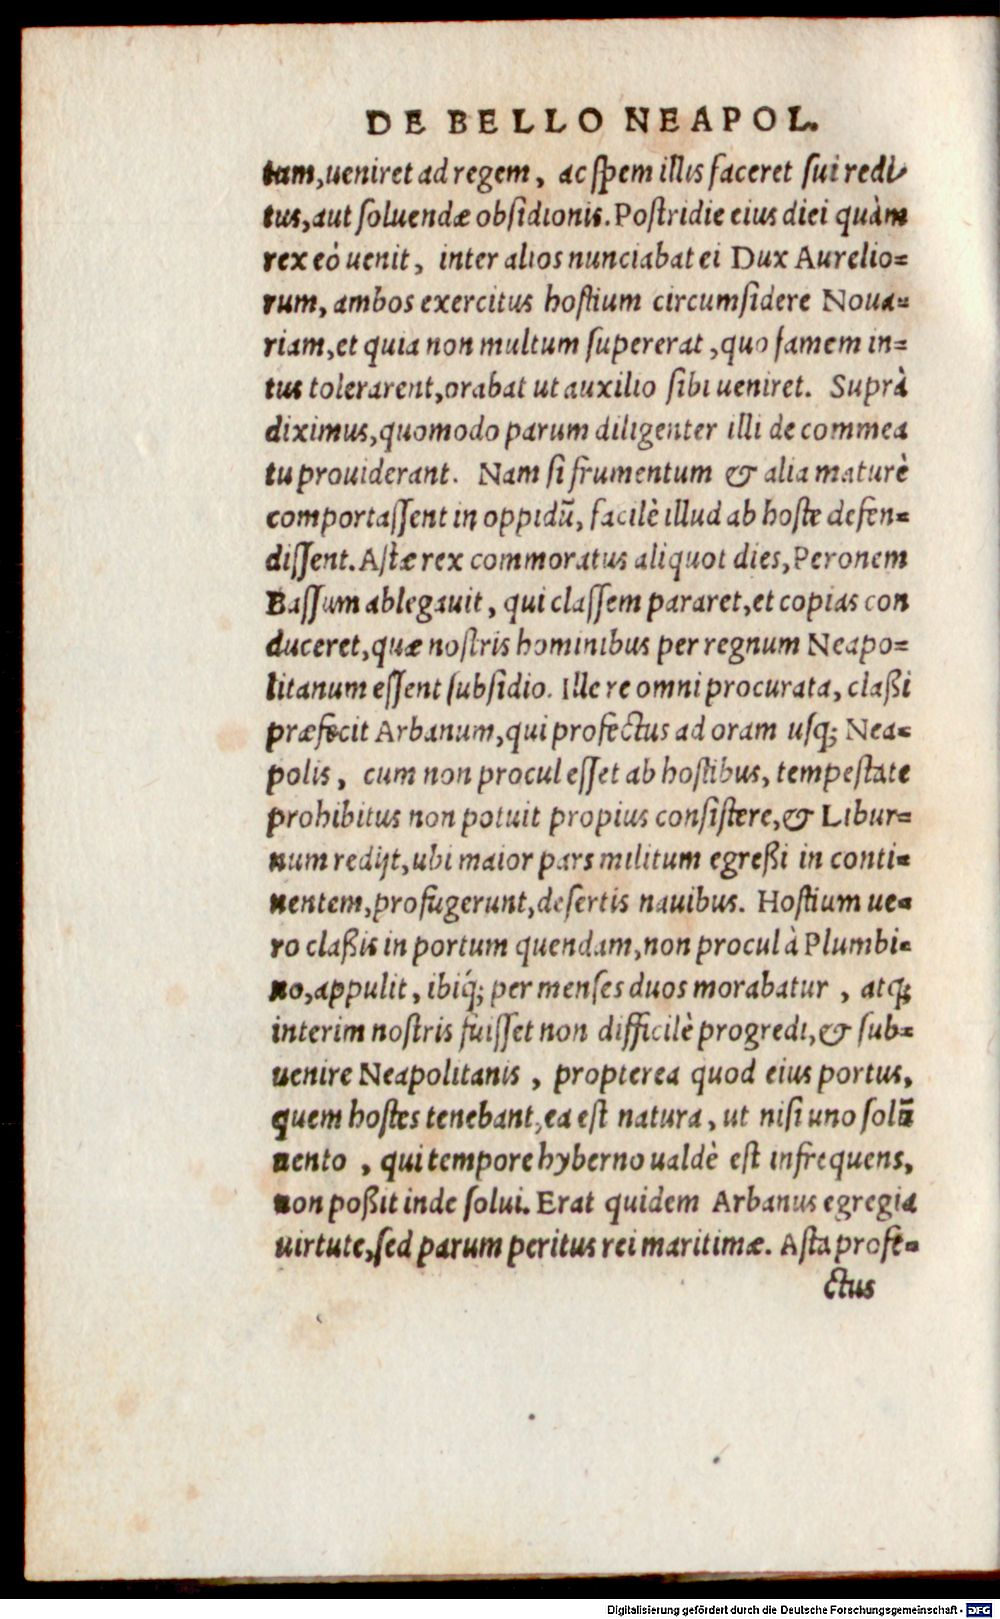 DE BELLO NEAPOL.
tam, ueniret ad regem, ac spem illis faceret sui redi-
tus, aut soluendæ obsidionis. Postridie eius diei quàm
rex eò uenit, inter alios nunciabat ei Dux Aurelio=
rum, ambos exercitus hostium circumsidere Noua=
riam, et quia non multum supererat, quo famem in=
tus tolerarent, orabat ut auxilio sibi ueniret. Suprà
diximus, quomodo parum diligenter illi de commea
tu prouiderant. Nam si frumentum & alia maturè
comportassent in oppidũ, facilè illud ab hoste defen=
dissent. Astæ rex commoratus aliquot dies, Peronem
Bassum ablegauit, qui classem pararet, et copias con
duceret, quæ nostris hominibus per regnum Neapo=
litanum essent subsidio. Ille re omni procurata, claßi
præfecit Arbanum, qui profectus ad oram usq; Nea=
polis, cum non procul esset ab hostibus, tempestate
prohibitus non potuit propius consistere, & Libur=
num redijt, ubi maior pars militum egreßi in conti=
nentem, profugerunt, desertis nauibus. Hostium ue=
ro claßis in portum quendam, non procul à Plumbi=
no, appulit, ibiq́; per menses duos morabatur, atq;
interim nostris fuisset non difficilè progredi, & sub=
uenire Neapolitanis, propterea quod eius portus,
quem hostes tenebant, ea est natura, ut nisi uno solũ
uento, qui tempore hyberno ualdè est infrequens,
non poßit inde solui. Erat quidem Arbanus egregia
uirtute, sed parum peritus rei maritimæ. Asta profe=
ctus
Digitalisierung gefördert durch die Deutsche Forschungsgemeinschaft - DFG